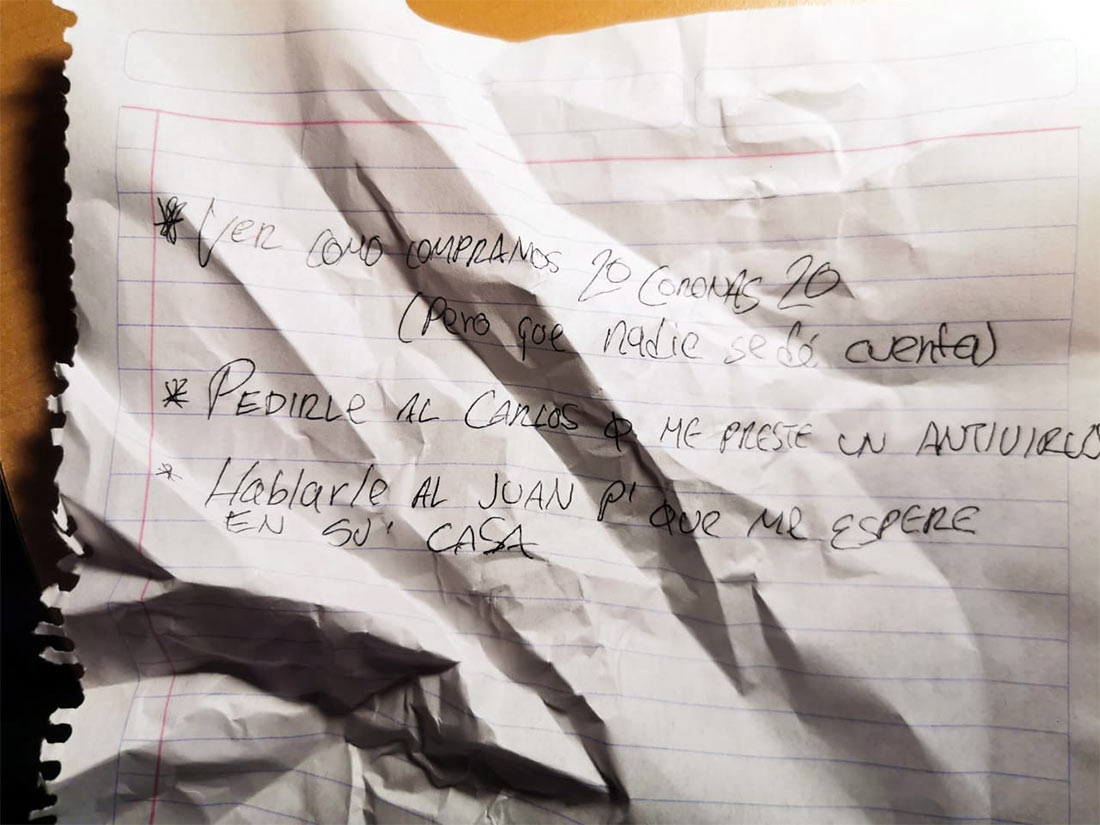 * Ver como compramos 20 coronas 20
(Pero que nadie se dé cuenta)
* PEDIRLE AL CARLOS Q ME PRESTE UN ANTIVIRUS
* Hablarle AL JUAN P' QUE ME ESPERE
EN SU' CASA